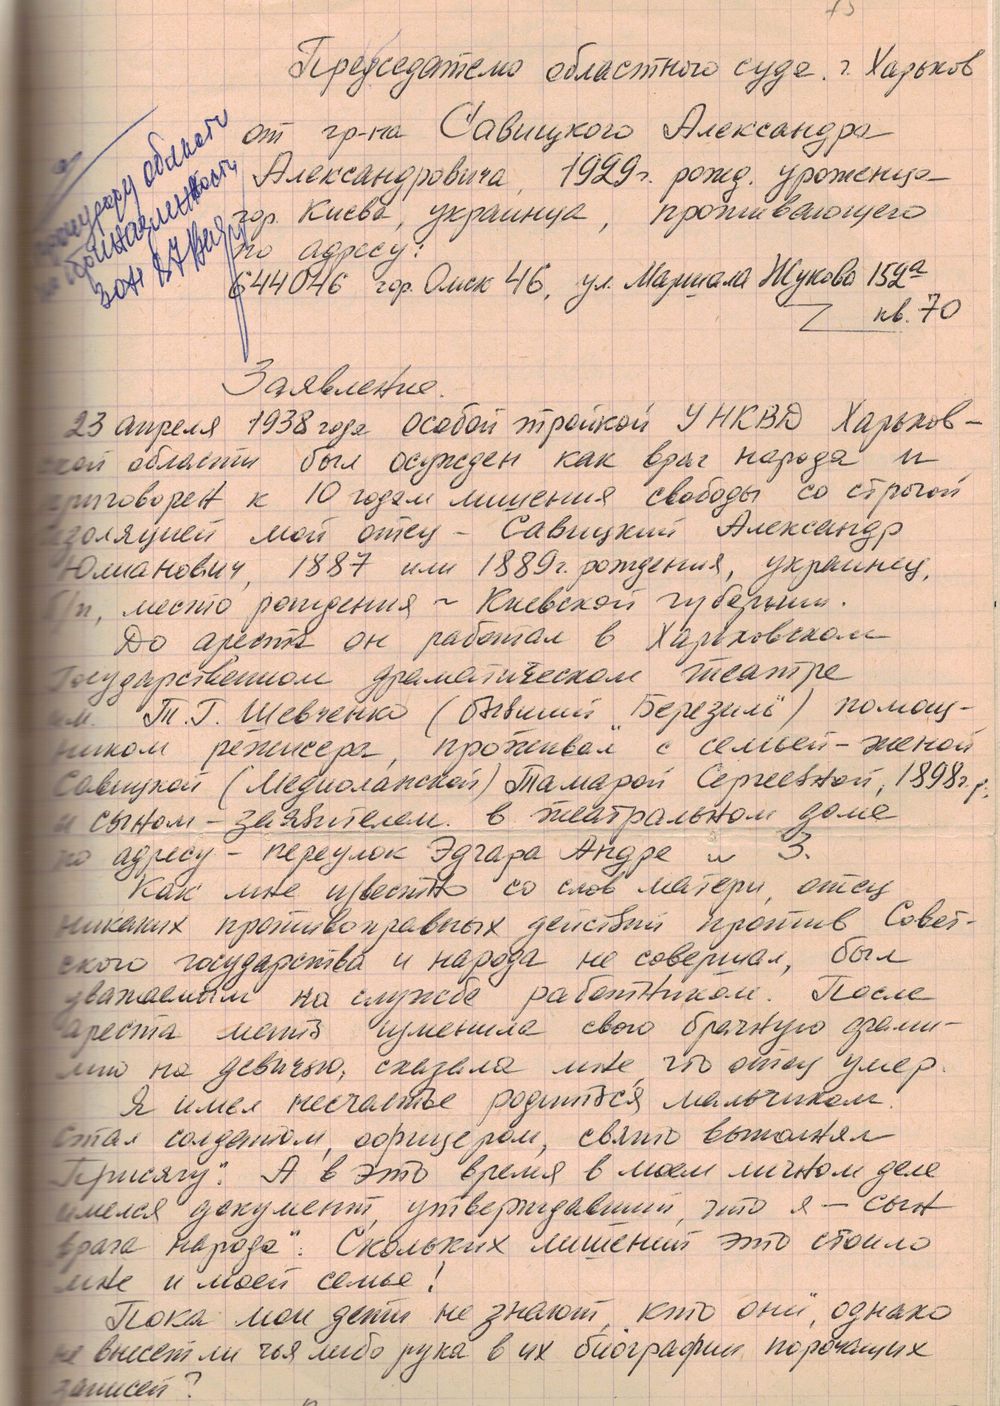 Председателю областного суда г. Харьков
от гр-на Савицкого Александра
Александровича, 1929 г. рожд. уроженца
гор. Киева, украинца, проживающего
по адресу:
644046 гор. Омск 46, ул. Маршала Жукова 152а
кв. 70
прокурору области
по принадлежности
Заявление.
23 апреля 1938 года особой тройкой УНКВД Харьков-
ской области был осужден как враг народа и
приговорен к 10 годам лишения свободы со строгой
изоляцией мой отец – Савицкий Александр
Юлианович, 1887 или 1889 г. рождения, украинец,
б/п, место рождения – Киевской губернии.
До ареста он работал в Харьковском
Государственном драматическом театре
им. Т.Г. Шевченко (бывший „Березиль") помощ-
ником режисера, проживал с семьей – женой
Савицкой (Медиоланской) Тамарой Сергеевной, 1898 г.р.
и сыном – заявителем в театральном доме
по адресу – переулок Эдгара Андре № 3.
Как мне известно со слов матери, отец
никаких противоправных действий против Совет-
ского государства и народа не совершал, был
уважаемым на службе работником. После
ареста мать изменила свою брачную фами-
лию на девичью, сказала мне что отец умер.
Я имел несчастье родиться мальчиком.
Стал солдатом, офицером, свято выполнял
„Присягу". А в это время в моем личном деле
имелся документ, утверждавший, что я – „сын
врага народа". Скольких лишений это стоило
мне и моей семье!
Пока мои дети не знают „кто они", однако
не внесет ли чья либо рука в их биографии порочащих
записей?